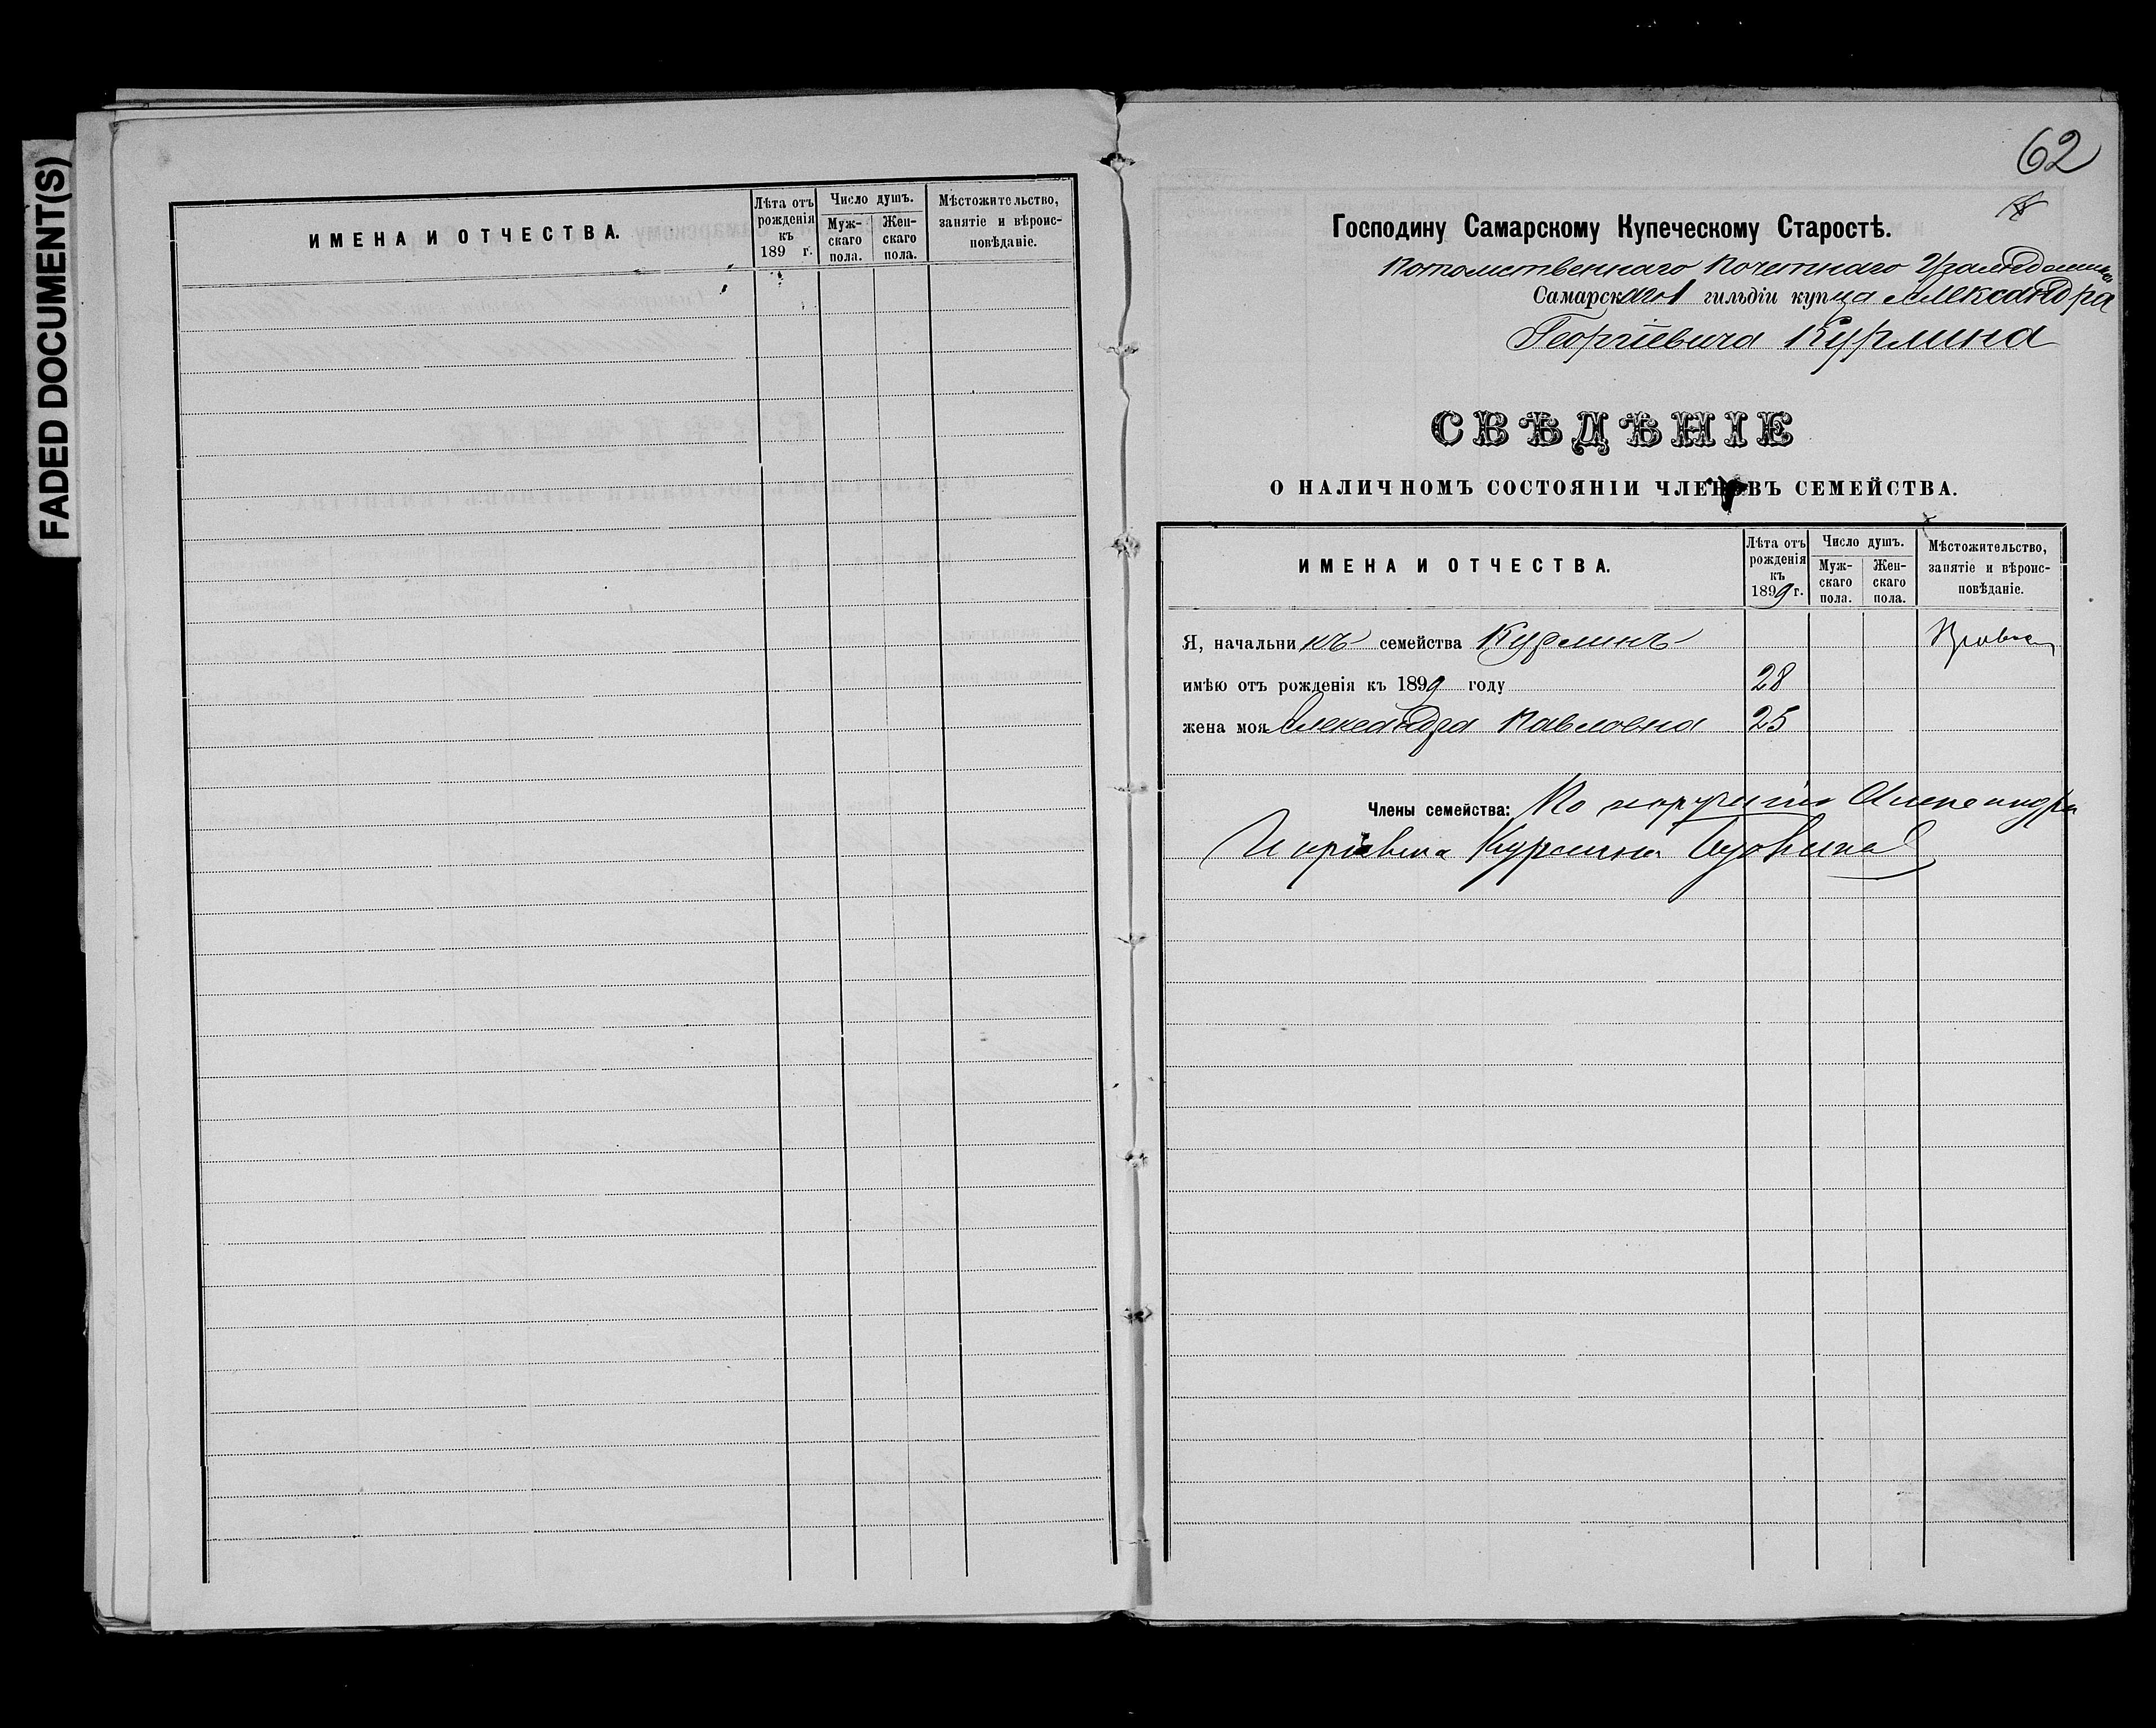 FADED DOCUMENT(S)
ИМЕНА И ОТЧЕСТВА.
Лѣта отъ рожденія къ 189 г.
Число душъ.
Муж-скаго пола.
Жен-скаго пола.
Мѣстожительство, занятіе и вѣроис-повѣданіе.
62
Господину Самарскому Купеческому Старостѣ.
Потомственнаго Почетнаго Гражданина
Самарскаго 1 гильдіи купца Александра
Георгіевича Курлина
СВѢДѢНІЕ
О НАЛИЧНОМЪ СОСТОЯНІИ ЧЛЕНОВЪ СЕМЕЙСТВА.
ИМЕНА И ОТЧЕСТВА.
Лѣта отъ рожденія къ 1899 г.
Число душъ.
Муж-скаго пола.
Жен-скаго пола.
Мѣстожительство, занятіе и вѣроис-повѣданіе.
Я, начальникъ семейства Курлинъ
имѣю отъ рожденія къ 1899 году 28
жена моя Александра Павловна 25
Члены семейства: По порученію Александра
Курлина